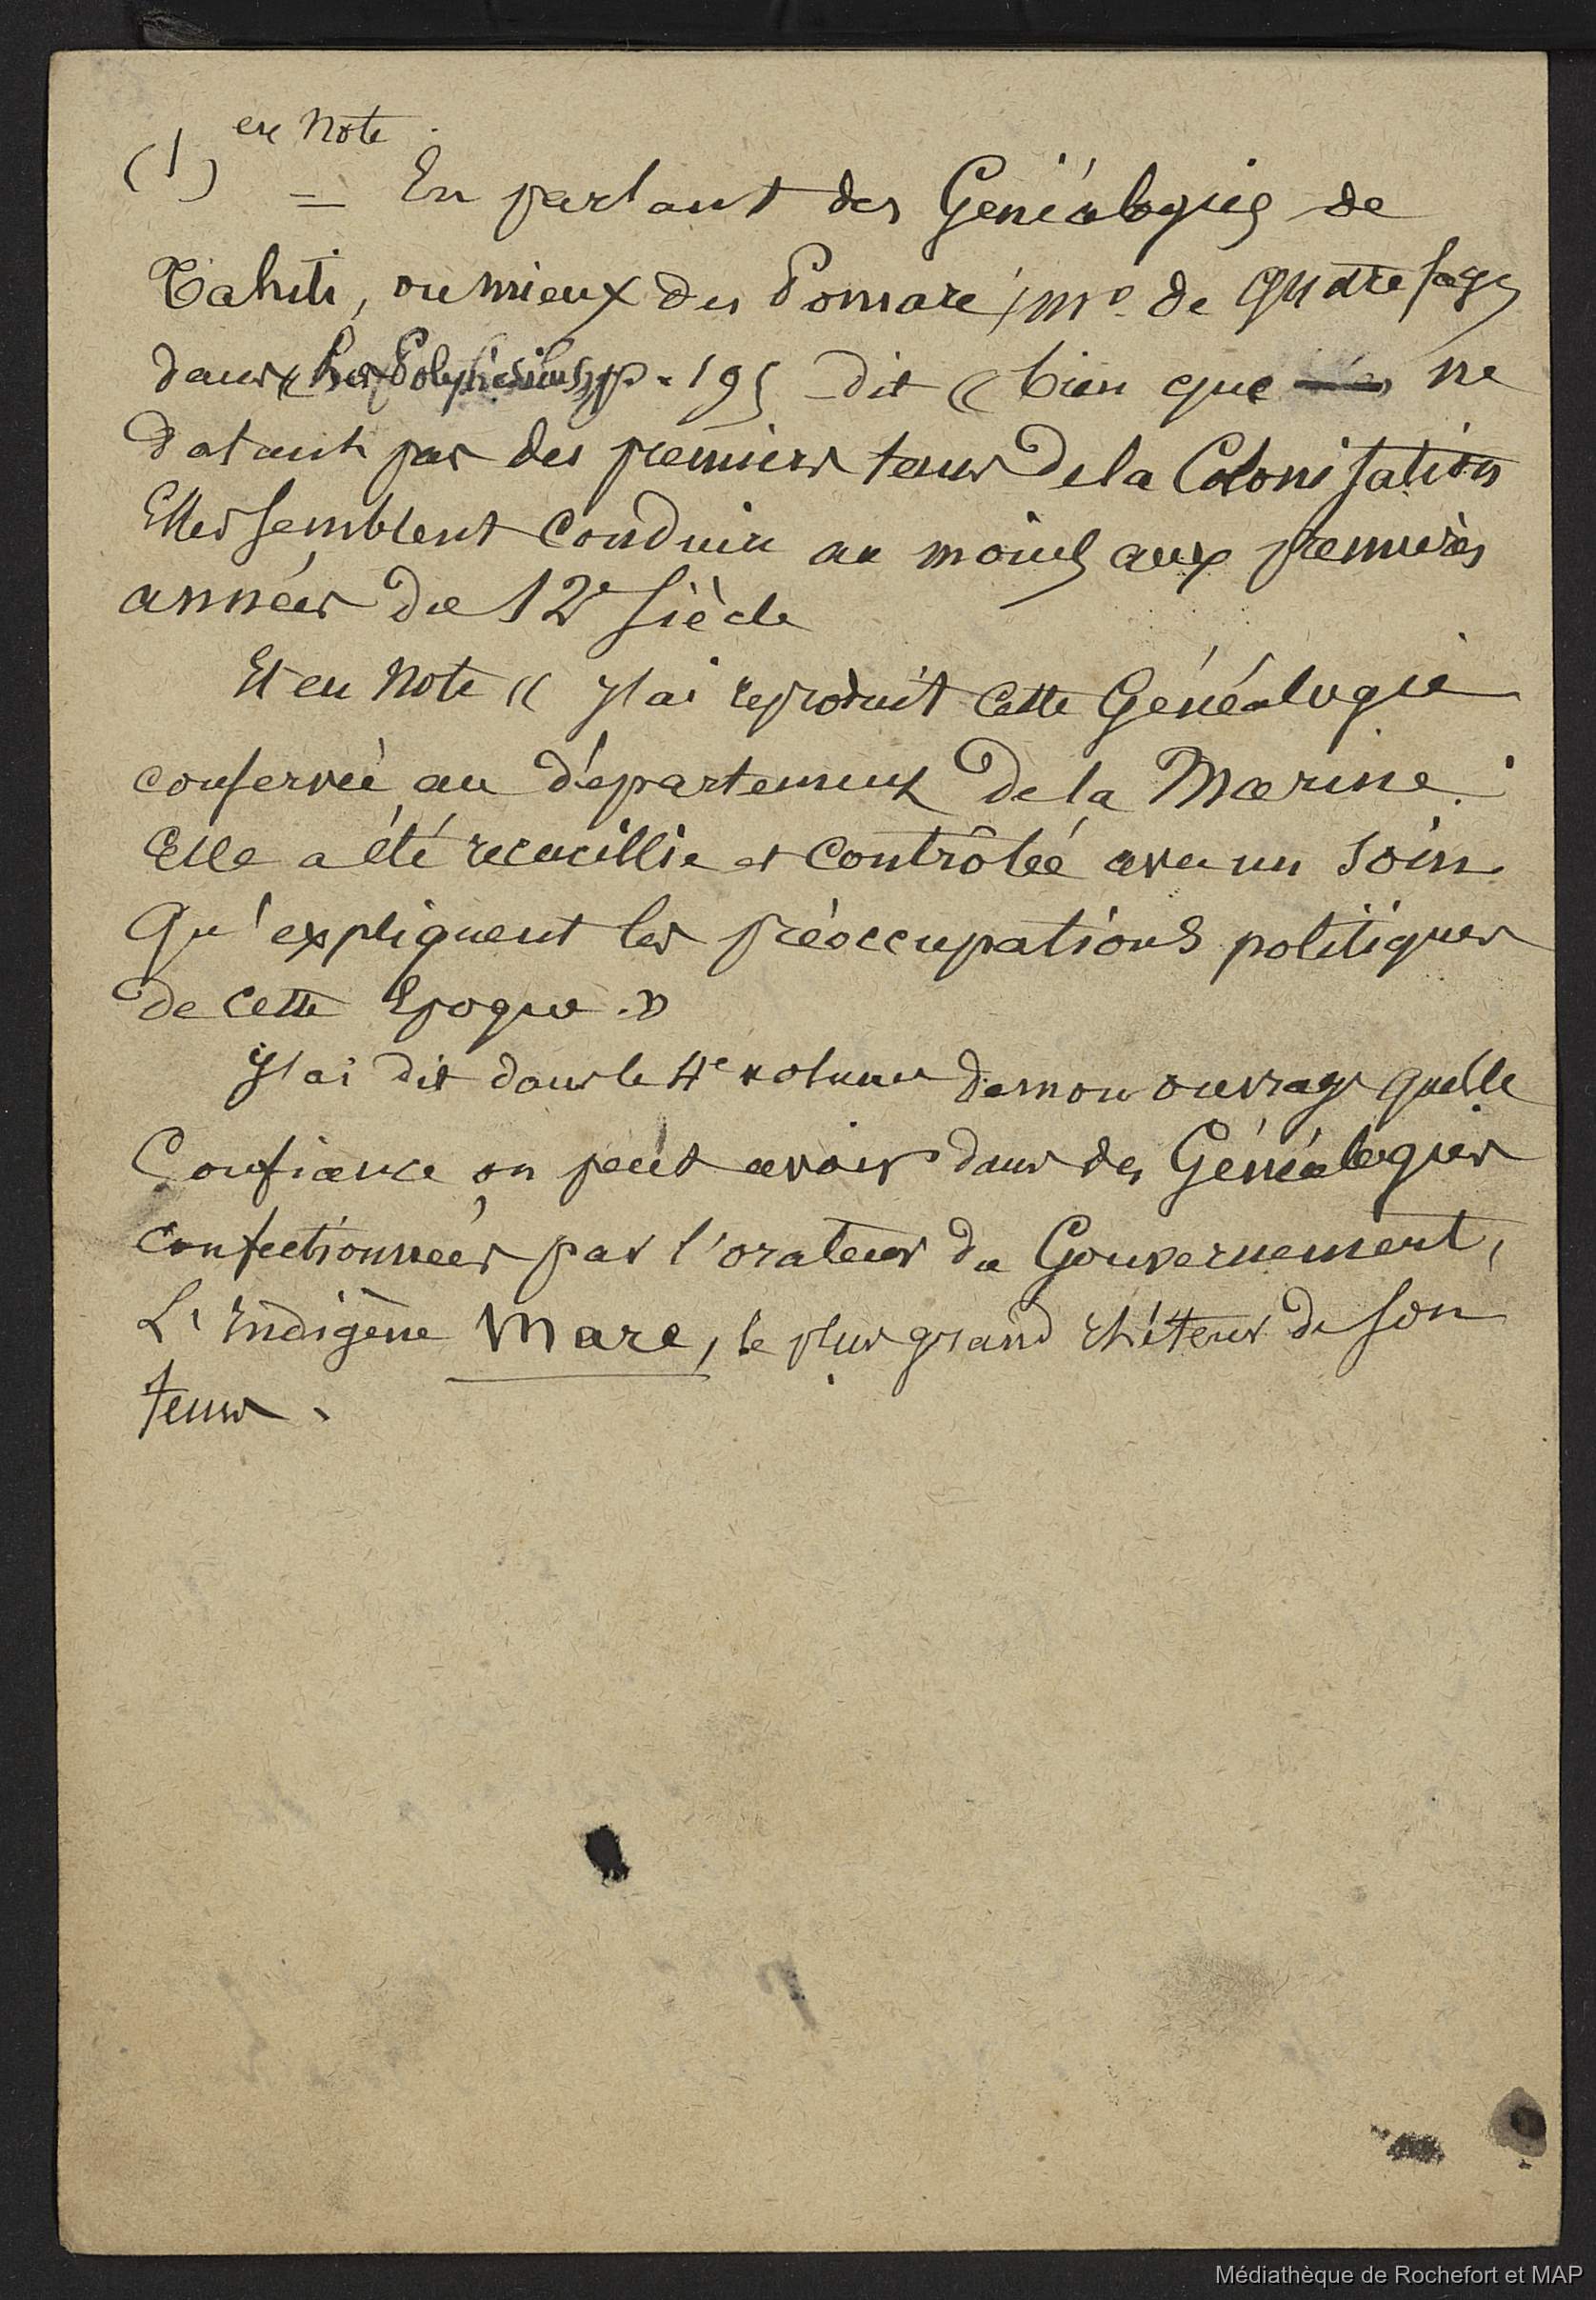 en Note
(1) = En parlant des Généalogies de
Tahiti, ou mieux des Pomaré, Mr de Quatrefages
dans « Les Polynésiens » p. 195 dit « bien que ne
datant pas des premiers tems de la Colonisation
Elles semblent conduire au moins aux premières
années du 12e Siècle
Et en Note « J'ai reproduit cette Généalogie
conservée au département de la Marine.
Elle a été recueillie et contrôlée avec un soin
Qu'expliquent les préoccupations politiques
de cette Epoque. »
J'ai dit dans le 4e volume de mon ouvrage quelle
Confiance on peut avoir dans des Généalogies
confectionnées par l'orateur du Gouvernement,
L'Indigène Mare, le plus grand rhéteur de son
tems.
Médiathèque de Rochefort et MAP